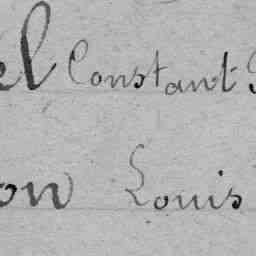 el Constant
on Louis